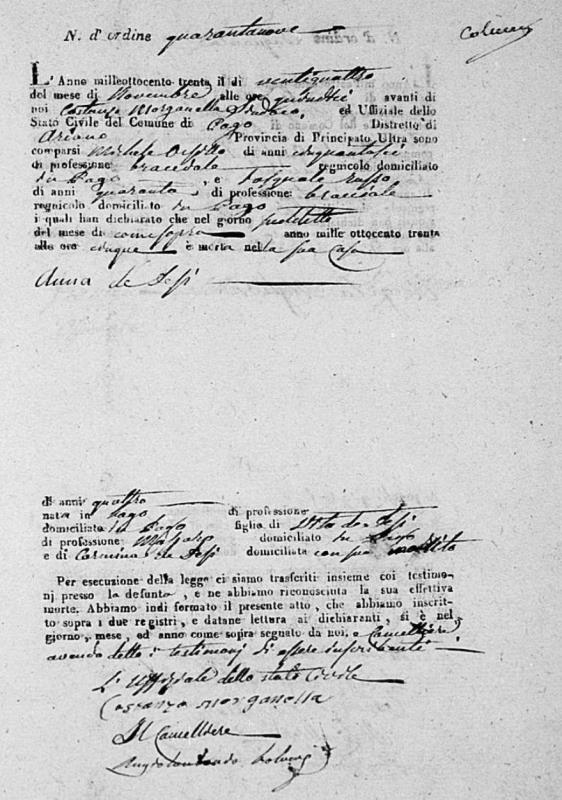 N. d'ordine quarantanove
L'Anno milleottocento trenta il di ventiquattro
del mese di Novembre alle ore quindici avanti di
noi Costanzo Morganella Sindaco, ed Uffiziale dello
Stato Civile del Comune di Pago Distretto di
Ariano Provincia di Principato Ultra sono
comparsi Michele di anni cinquantasei
di professione bracciale regnicolo domiciliato
in Pago, e Pasquale Russo
di anni quaranta di professione bracciale
regnicolo domiciliato in Pago
i quali han dichiarato che nel giorno predetto
del mese di come sopra anno mille ottocento trenta
alle ore cinque è morta nella sua Casa
Anna de
di anni quattro
nata in Pago di professione
domiciliata in Pago figlia di Vito de
di professione domiciliato in Pago
e di Carmina de domiciliata con suo marito
Per esecuzione della legge ci siamo trasferiti insieme coi testimo-
nj presso la defunta, e ne abbiamo riconosciuta la sua effettiva
morte. Abbiamo indi formato il presente atto, che abbiamo inscrit-
to sopra i due registri, e datane lettura ai dichiaranti, si è nel
giorno, mese, ed anno come sopra segnato da noi, e Cancelliere
avendo detto i testimonj di essere inscribenti
L'Uffiziale dello stato Civile
Costanzo Morganella
Il Cancelliere